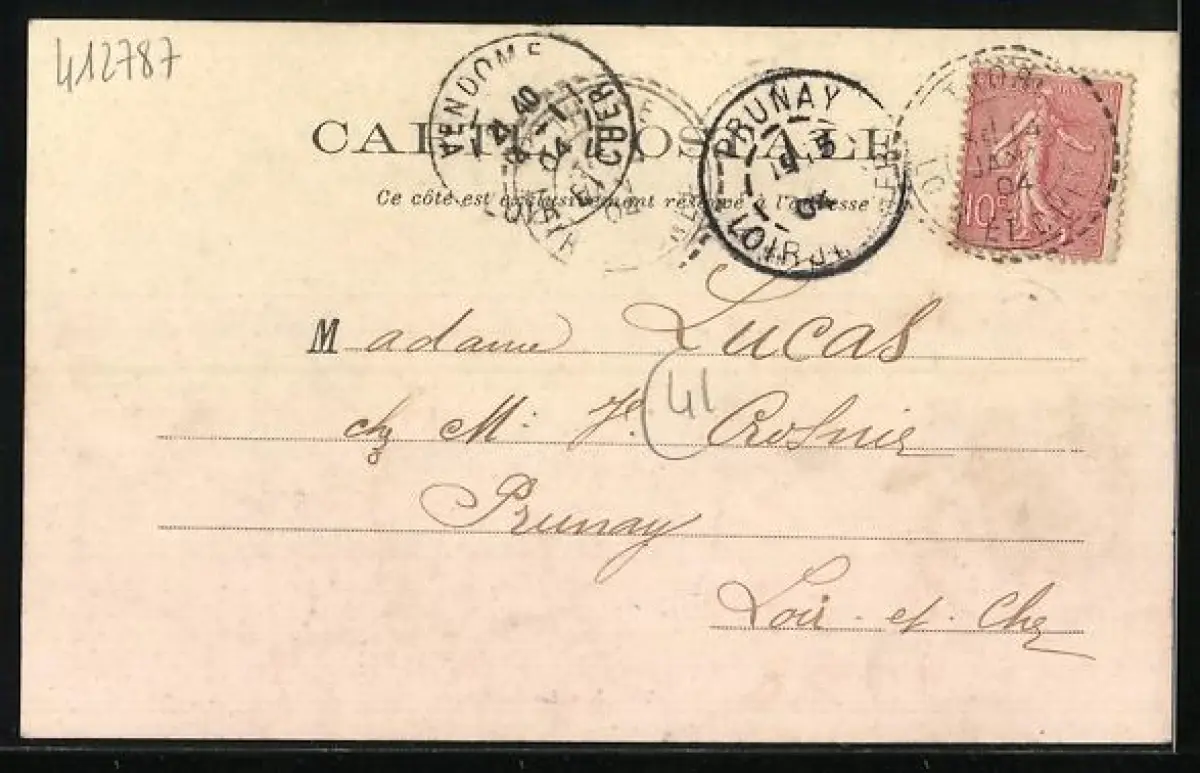 412787
CARTE POSTALE
Ce côté est exclusivement réservé à l'adresse
VENDOME
LOIR ET CHER
22 40
04
PRUNAY
04
LOIR
JAN
04
ET CHER
10
Madame Lucas
chz M. J. Crosnier
(41
Prunay
Loir-et-Cher